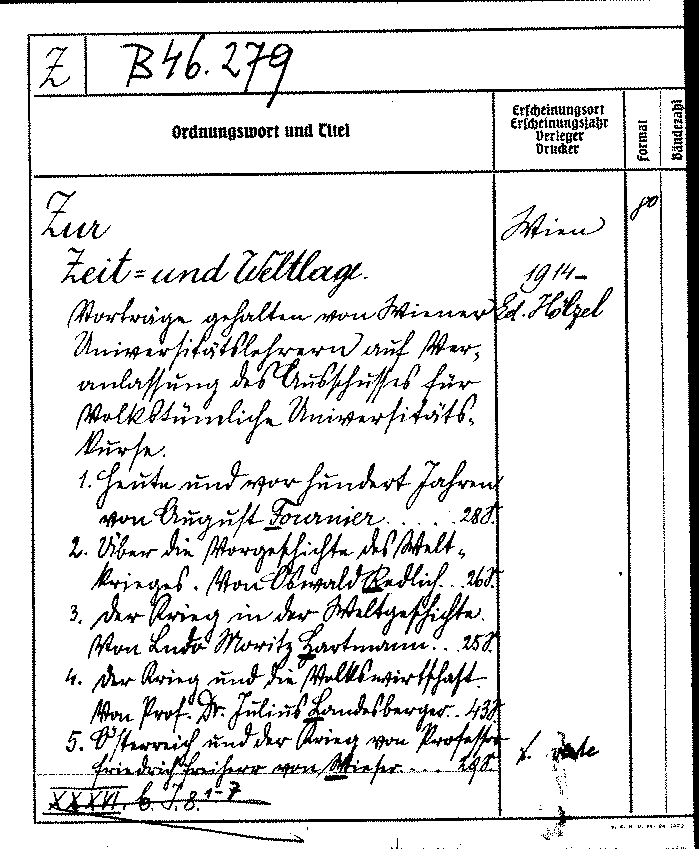 Z
B 46.279
Ordnungswort und Titel
Erscheinungsort
Erscheinungsjahr
Verleger
Drucker
Format
Bändezahl
Zur
Zeit= und Weltlage.
Vorträge gehalten von Wiener
Universitätslehrern auf Ver-
anlassung des Ausschusses für
Volkstümliche Universitäts-
kurse.
1. Heute und vor hundert Jahren
von August Fournier..... 28S.
2. Über die Vorgeschichte des Welt-
krieges. Von Oswald Redlich.. 26S.
3. Der Krieg in der Weltgeschichte.
Von Ludo Moritz Hartmann.. 25S.
4. Der Krieg und die Volkswirtschaft.
Von Prof. Dr. Julius Landesberger.. 43S.
5. Österreich und der Krieg von Professor
Friedrich Freiherr von Wieser.... 29S.
XXXVI. b. J. 8. 1-7
Wien
1914-
Ed. Hölzel
8°